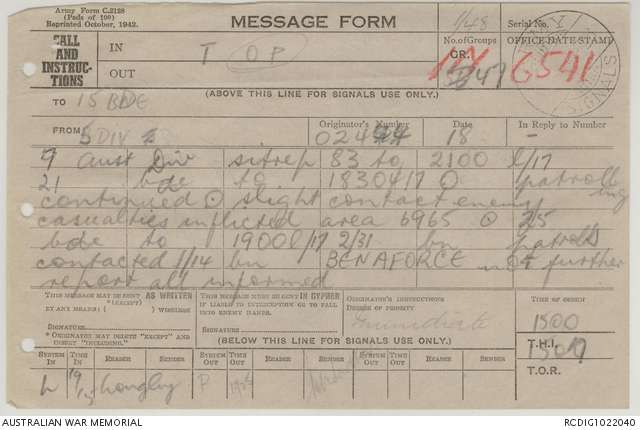 Army Form C.2128
(Pads of 100)
Reprinted October, 1942.
MESSAGE FORM
1/48
Serial No.
CALL
AND
INSTRUC-
TIONS
IN
T OP
OUT
No. of Groups
GR.
47
OFFICE DATE STAMP
6541
SIGNALS
(ABOVE THIS LINE FOR SIGNALS USE ONLY.)
TO 15 BDE
FROM 5 DIV
Originator's Number
Date
In Reply to Number
0244
18
-
9 Aust Div sitrep 83 to 2100 L/17
21 bde to 1830 L/17 O patrolling
continued O slight contact enemy
casualties inflicted area 6965 O 25
bde to 1900 L/17 2/31 bn patrols
contacted 2/14 bn BENAFORCE not further
report all informed
THIS MESSAGE MAY BE SENT AS WRITTEN
(EXCEPT)
BY ANY MEANS ( ) WIRELESS
SIGNATURE
*ORIGINATOR MAY DELETE "EXCEPT" AND
INSERT "INCLUDING."
THIS MESSAGE MUST BE SENT IN CYPHER
IF LIABLE TO INTERCEPTION OR TO FALL
INTO ENEMY HANDS.
SIGNATURE
(BELOW THIS LINE FOR SIGNALS USE ONLY.)
ORIGINATOR'S INSTRUCTIONS
DEGREE OF PRIORITY
Immediate
TIME OF ORIGIN
1500
T.H.I.
1507
T.O.R.
SYSTEM IN
TIME IN
READER
SENDER
SYSTEM OUT
TIME OUT
READER
SENDER
SYSTEM OUT
TIME OUT
READER
SENDER
L
Longley
P
AUSTRALIAN WAR MEMORIAL
RCDIG1022040